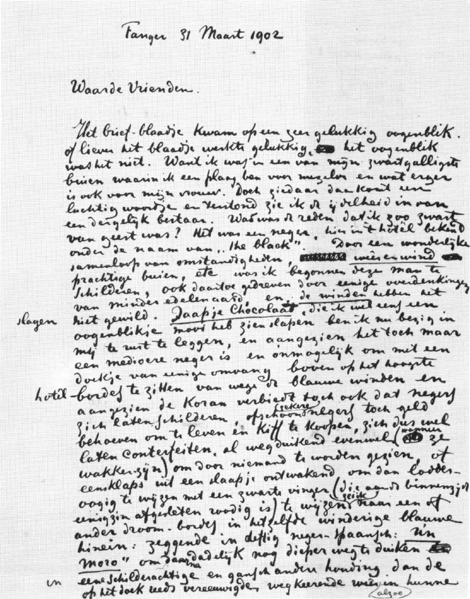 Tanger 31 Maart 1902
Waarde Vrienden.
Het brief-blaadje kwam op een zeer gelukkig oogenblik.
of liever het blaadje werkte gelukkig, het oogenblik
was het niet. Want ik was in een van mijn zwartgalligste
buien waarin ik een plaag ben voor mezelve en wat erger
is ook voor mijn vrouw. Doch ziedaar daar komt een
luchtig woordje en terstond zie ik de ijdelheid in van
een dergelijk bestaar. Wat was de reden dat ik zoo zwart
van geest was? Het was een neger, hier in 't hôtel bekend
onder de naam van „the black". Door een wonderlijke
samenloop van omstandigheden,
prachtige buien, etc was ik begonnen deze man te
schilderen, ook daartoe gedreven door eenige overdenkingen
van minder edelen aard, en de winden hebben het
niet gewild. Jaapje Chocolaad, die ik wel eens een
oogenblikje mooi heb zien slapen ben ik nu bezig in
slagen
mij te uit te leggen, en aangezien het toch maar
een mediocre neger is en onmogelijk om met een
doekje van eenige omvang boven op het hoogste
hotel-
bordes te zitten van wege de blauwe winden en
aangezien de Koran verbiedt toch ook dat negers
zich laten schilderen, ofschoon zekere negers toch geld
behoeven om te leven en Kiff te koopen, zich dus wel
laten conterfeiten, al wegduikend evenwel ze
wakker zijn) om door niemand te worden gezien, of
eensklaps uit een slaapje ontwakend om dan lodder-
oogig te wijzen met een zwarte vinger (die aan de binnenzijde
eenigzins afgesleten roodig is) te wijzen zeide ik naar een of
ander droom-bordes in hetzelfde winderige blauwe
hinein: zeggende in deftig neger-Spaansch: Un
Moro" om daarna dadelijk nog dieper weg te duiken
in
eene schilderachtige en gansch andere houding dan de
op het doek reeds vereeuwigde, wegkeerende weer in hunne
alzoo